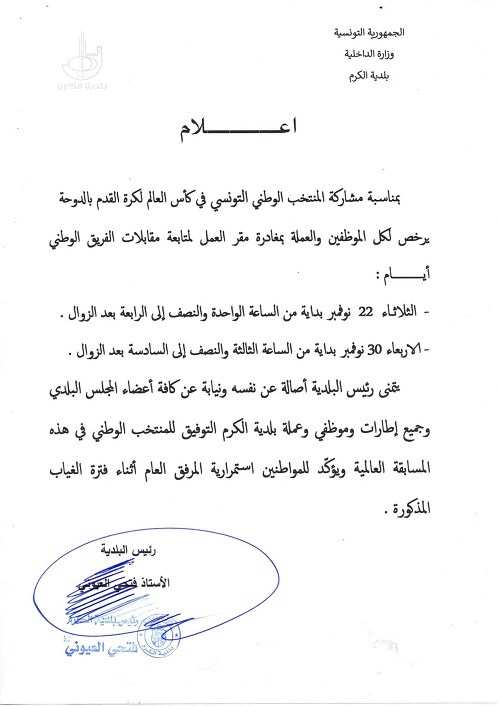 الجمهورية التونسية
وزارة الداخلية
بلدية الكرم
بلدية الكرم
اعـــــــلام
بمناسبة مشاركة المنتخب الوطني التونسي في كأس العالم لكرة القدم بالدوحة
يرخص لكل الموظفين والعملة بمغادرة مقر العمل لمتابعة مقابلات الفريق الوطني
أيـــــام :
- الثلاثاء 22 نوفمبر بداية من الساعة الواحدة والنصف إلى الرابعة بعد الزوال .
- الاربعاء 30 نوفمبر بداية من الساعة الثالثة والنصف إلى السادسة بعد الزوال .
يتمنى رئيس البلدية أصالة عن نفسه ونيابة عن كافة أعضاء المجلس البلدي
وجميع إطارات وموظفي وعملة بلدية الكرم التوفيق للمنتخب الوطني في هذه
المسابقة العالمية ويؤكّد للمواطنين استمرارية المرفق العام أثناء فترة الغياب
المذكورة .
رئيس البلدية
الأستاذ فتحي العيوني
رئيس بلدية الكرم
فتحي العيوني
بلدية الكرم